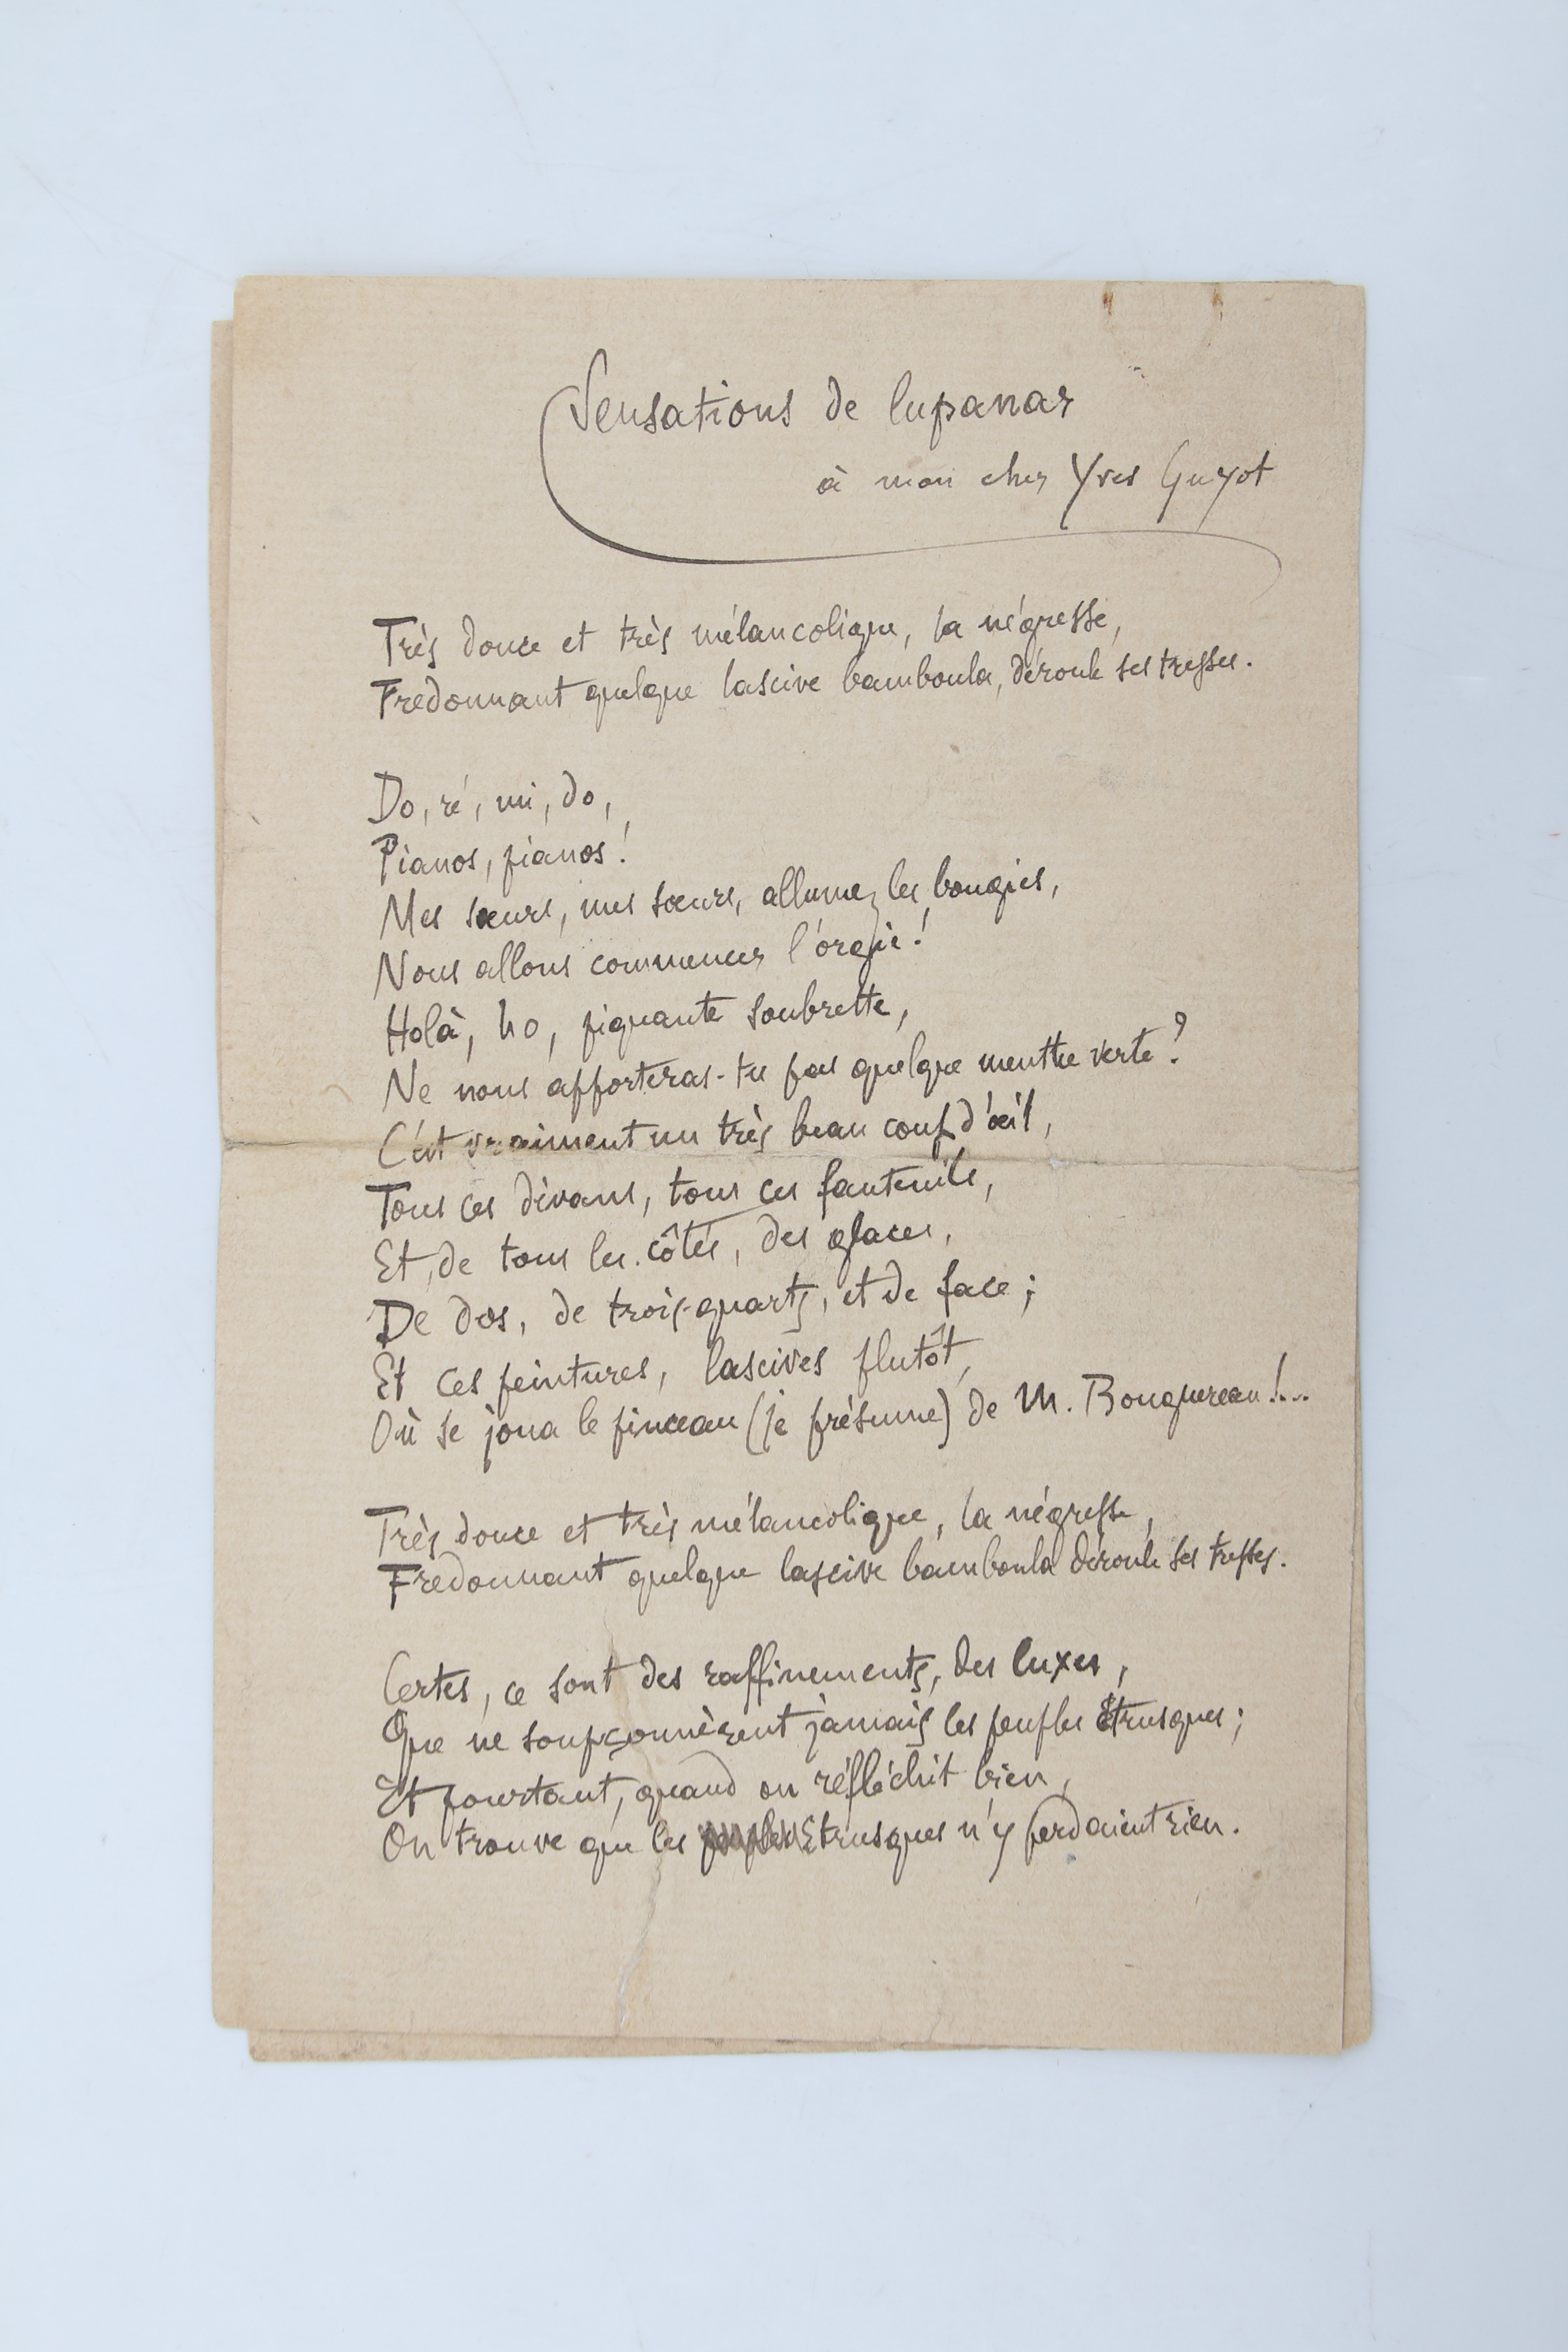 Sensations de lupanar
à mon cher Yves Guyot
Très douce et très mélancolique, la négresse,
Fredonnant quelque lascive bamboula, déroule ses tresses.
Do, ré, mi, do,
Pianos, pianos !
Mes sœurs, mes sœurs, allumez les bougies,
Nous allons commencer l'orgie !
Holà, ho, piquante soubrette,
Ne nous apporteras-tu pas quelque menthe verte ?
C'est vraiment un très beau coup d'œil,
Tous ces divans, tous ces fauteuils,
Et, de tous les côtés, des glaces,
De dos, de trois-quarts, et de face ;
Et ces peintures, lascives plutôt,
Où se joua le pinceau (je présume) de M. Bouguereau !...
Très douce et très mélancolique, la négresse,
Fredonnant quelque lascive bamboula déroule ses tresses.
Certes, ce sont des raffinements, des luxes,
Que ne soupçonnèrent jamais les peuples Étrusques ;
Et pourtant, quand on réfléchit bien,
On trouve que les peuples Étrusques n'y perdaient rien.